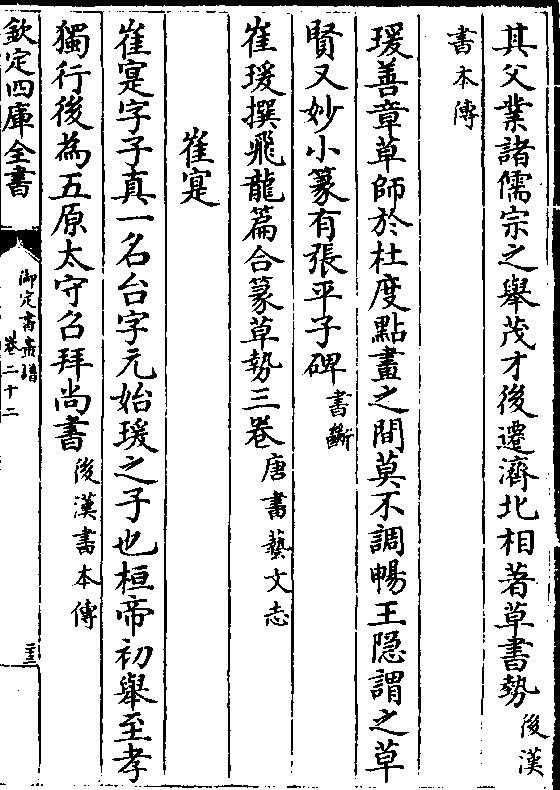 其父業諸儒宗之舉茂才後遷濟北相著草書勢後漢
書本傳
瑗善章草師於杜度點畫之間莫不調暢王隠謂之草
賢又妙小篆有張平子碑書斷
崔瑗撰飛龍篇合篆草勢三卷唐書藝文志
崔寔
崔寔字子真一名台字元始瑗之子也桓帝初舉至孝
獨行後為五原太守召拜尚書後漢書本傳
欽定四庫全書
御定書畫譜
卷二十二